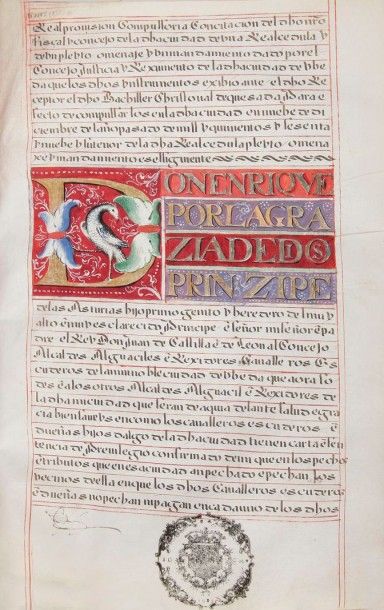 Real provision Compulsoria Con citacion del dho nro
fiscal y concejo de la dha ciudad de una Real cedula y
de un pleyto omenaje y un mandamiento dado por el
Concejo Justicia y Reximento de la dha ciudad de vbe
da que los dhos ynstrumentos exibio ante el dho Re
ceptor el dho Bachiller Christoual de quesada Para e
fecto de compulsar los en la dha ciudad en nuebe de di
ciembre del año pasado de mill y quinientos y sesenta
y nuebe y lu tenor de la dha Real cedula pleyto omena
xe y mandamiento es el siguiente
DON ENRIQVE
POR LA GRA
ZIA DE DIOS
PRINZIPE
de las Asturias hijo primo genito y heredero del muy
alto e muy esclarecido Principe e señor mi señor e pa
dre el Rey Don Juan de Castilla e de Leon al Concejo
Alcaldes Alguaciles e Rexidores Caualleros Es
cuderos de la muy noble ciudad de vbeda que aora so
des e a los otros Alcaldes Alguacil e Rexidores de
la dha mi ciudad que seran de aqui adelante salud e gra
cia bien sauebs en como los caualleros escuderos e
dueñas hijos dalgo de la dha ciudad tienen carta e sen
tencia de Preuilegio confirmado de mi que en los pechos
e tributos que en esa ciudad an pechado e pechan Los
vecinos de ella en que los dhos Caualleros escuderos
e dueñas no pechan ni pagan en cada un o de los dhos